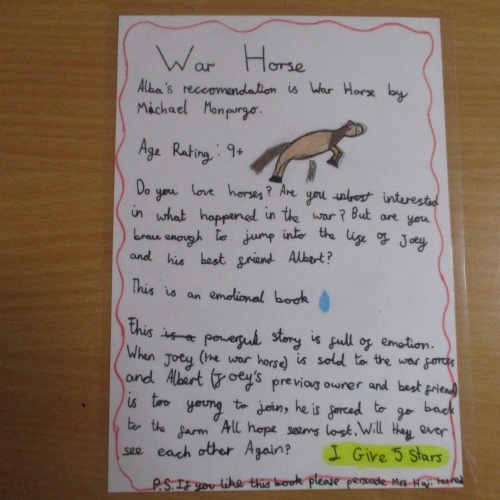 War Horse
Alba's reccomendation is War Horse by
Michael Monpurgo.
Age Rating: 9+
Do you love horses? Are you interested
in what happened in the war? But are you
brave enough to jump into the life of Joey
and his best friend Albert?
This is an emotional book
This is a powerful story is full of emotion.
When Joey (the war horse) is sold to the war forces
and Albert (Joey's previous owner and best friend)
is too young to join, he is forced to go back
to the farm All hope seems lost. Will they ever
see each other Again?
I Give 5 Stars
P.S. If you like this book please persuade Mrs